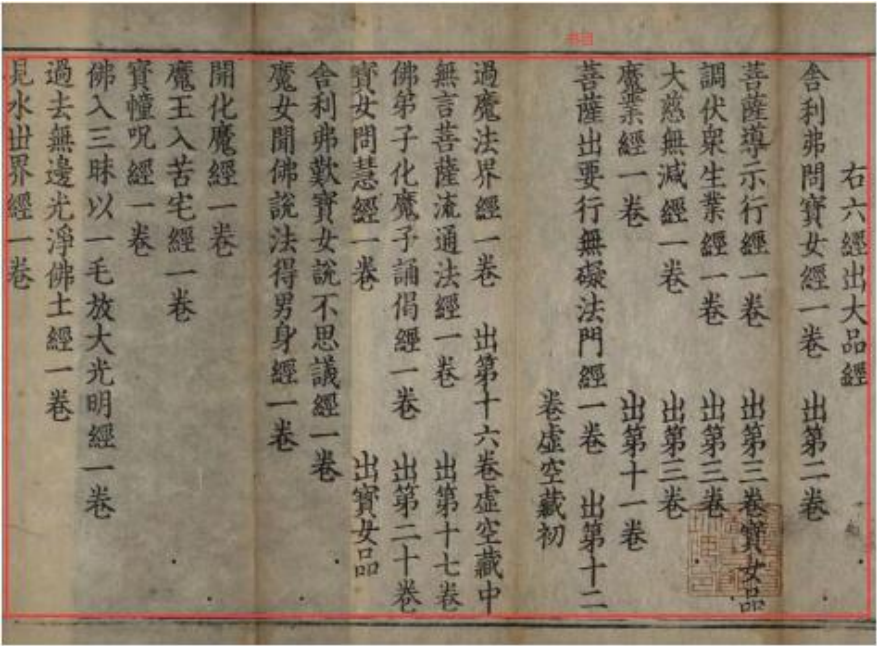 书目
右六經出大品經
舎利弗問寶女經一卷 出第二卷
菩薩導示行經一卷 出第三卷寶女品
調伏衆生業經一卷 出第三卷
大慈無減經一卷 出第三卷
魔業經一卷 出第十一卷
菩薩出要行無礙法門經一卷 出第十二
卷虛空藏初
過魔法界經一卷 出第十六卷虛空藏中
無言菩薩流通法經一卷 出第十七卷
佛弟子化魔子誦偈經一卷 出第二十卷
寶女問慧經一卷 出寶女品
舎利弗歎寶女說不思議經一卷
魔女聞佛說法得男身經一卷
開化魔經一卷
魔王入苦宅經一卷
寶幢呪經一卷
佛入三昧以一毛放大光明經一卷
過去無邊光淨佛土經一卷
見水世界經一卷